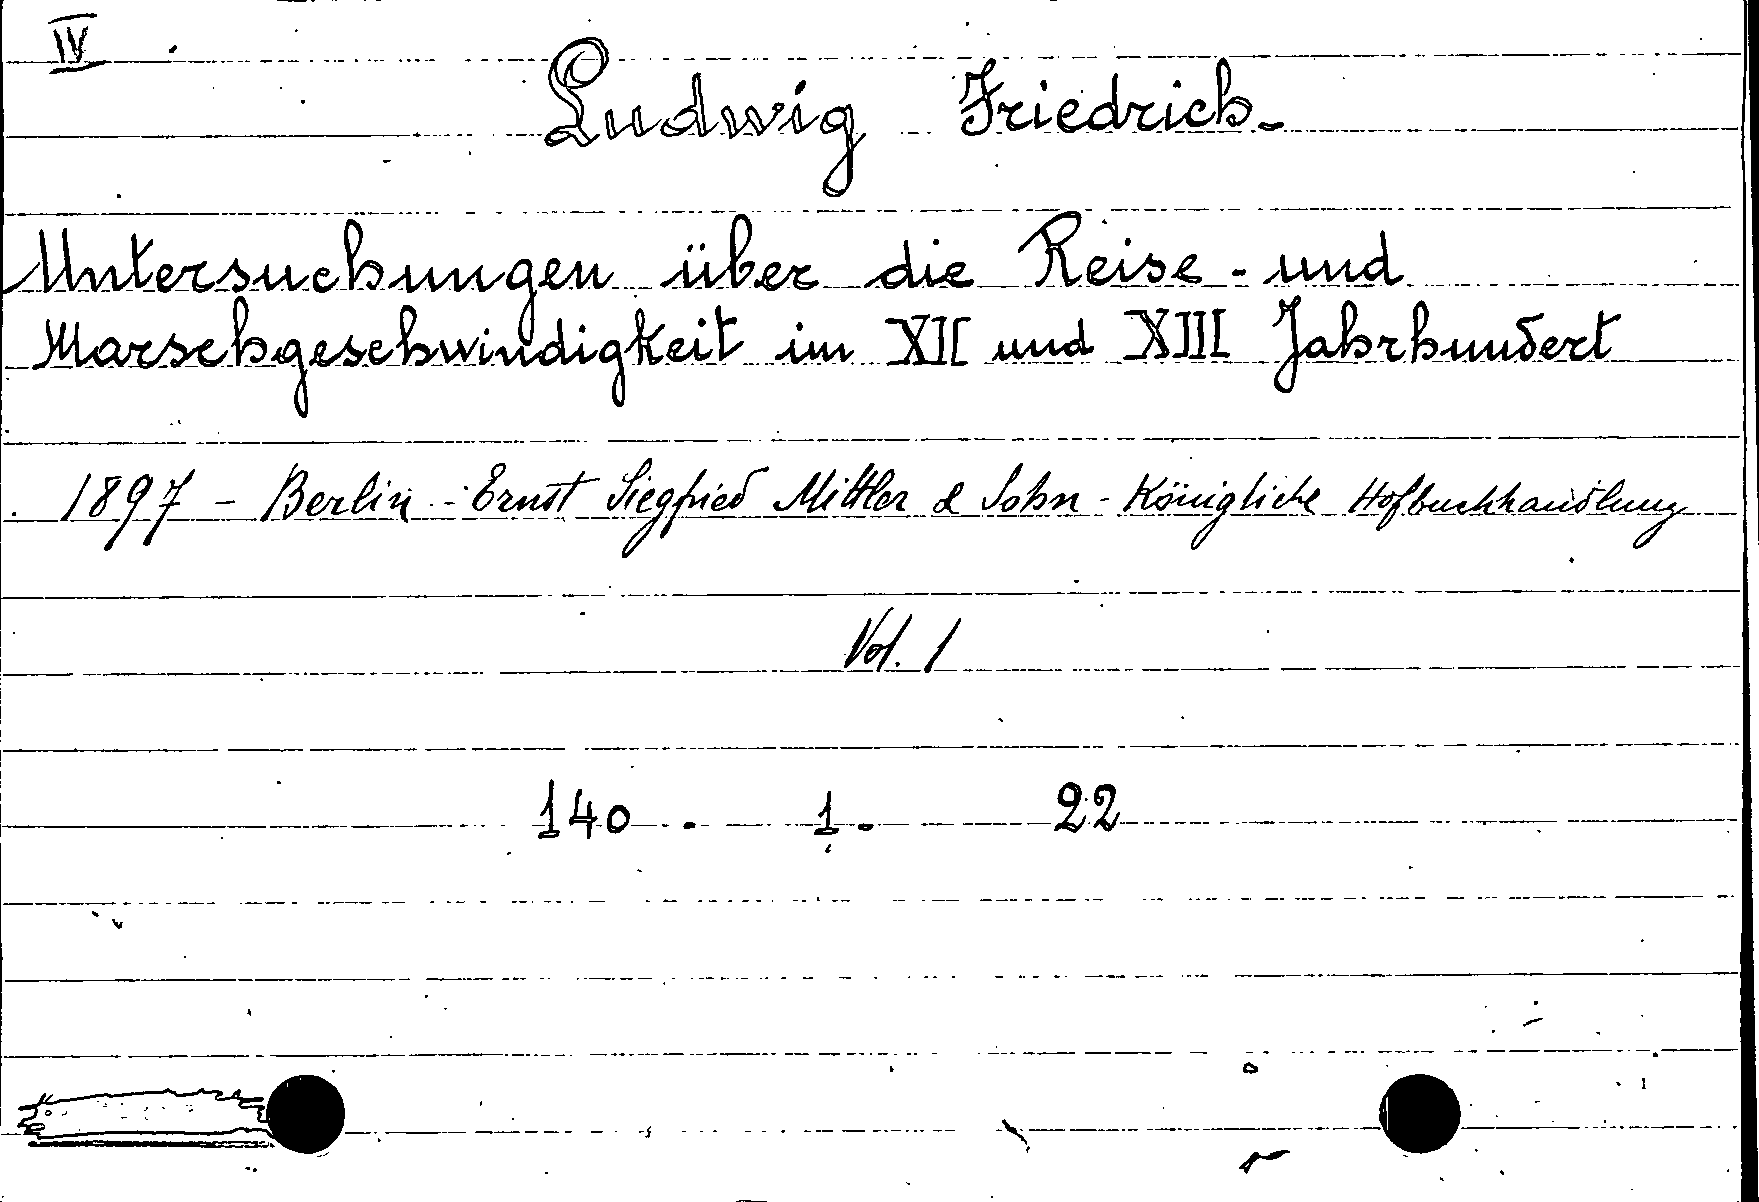 IV
Ludwig Friedrich-
Untersuchungen über die Reise- und
Marschgeschwindigkeit im XII und XIII Jahrhundert
1897 - Berlin - Ernst Siegfried Mittler & Sohn - Königliche Hofbuchhandlung
Vol. 1
140. 1. 22